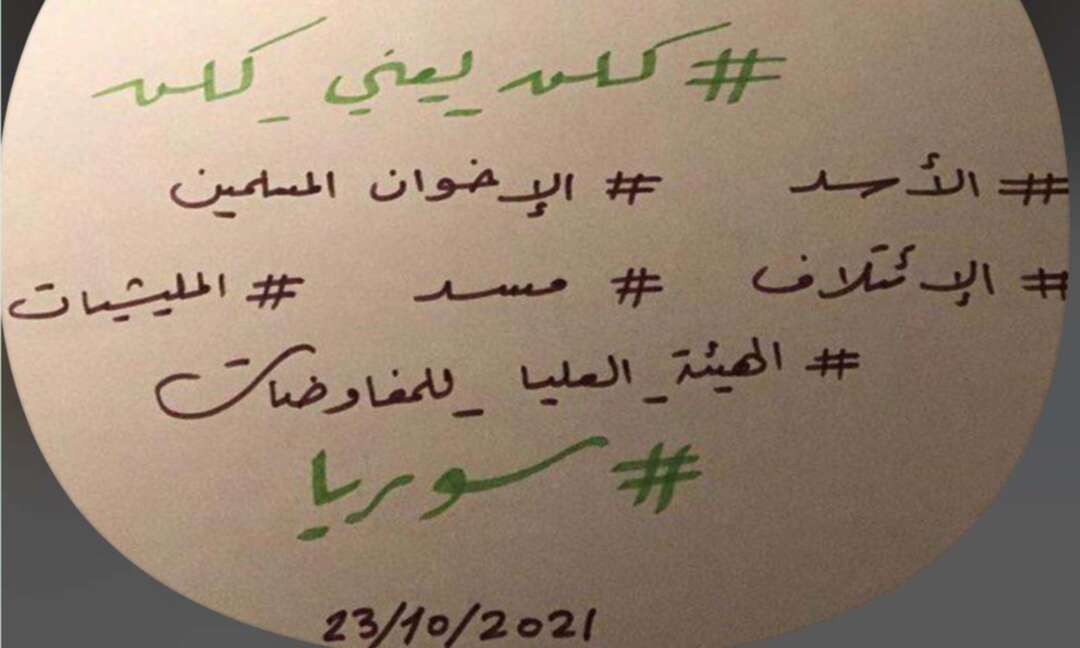 #كلن_يعني_كلن
#الأسد #الإخوان المسلمين
#الإئتلاف #مسد #المليشيات
#الهيئة_العليا_للمفاوضات
#سوريا
23/10/2021